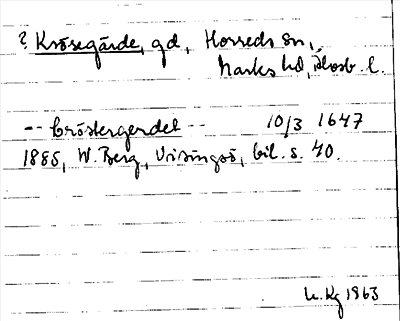 ? Krösegärde, gd, Horreds sn,
Marks hd, Älvsb. l.
-- Cröstergerdet -- 10/3 1647
1885, W. Berg, Visingsö, bil. s. 40.
1963